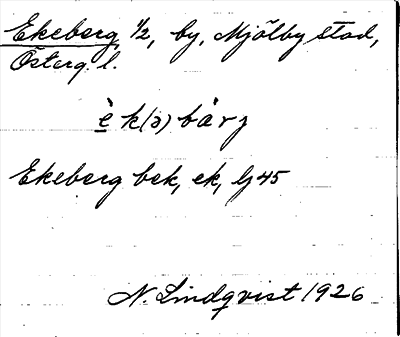 Ekeberg, 1/2, by, Mjölby stad,
Österg. l.
è k(ə) bà r j
Ekeberg bek, ek, lj 45
N. Lindqvist 1926